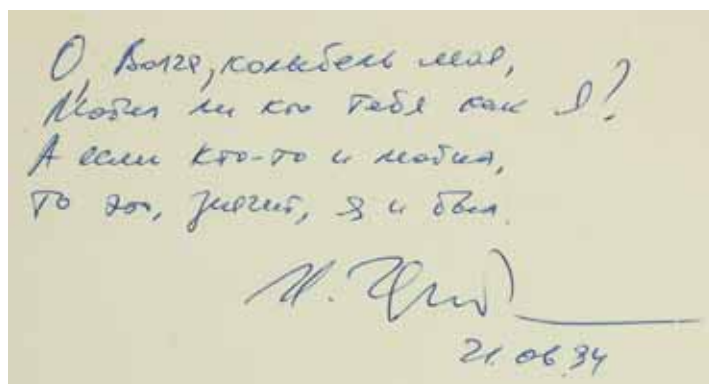 О, Волга, колыбель моя,
Любил ли кто тебя как я?
А если кто-то и любил,
то это, значит, я и был.
21.06.94